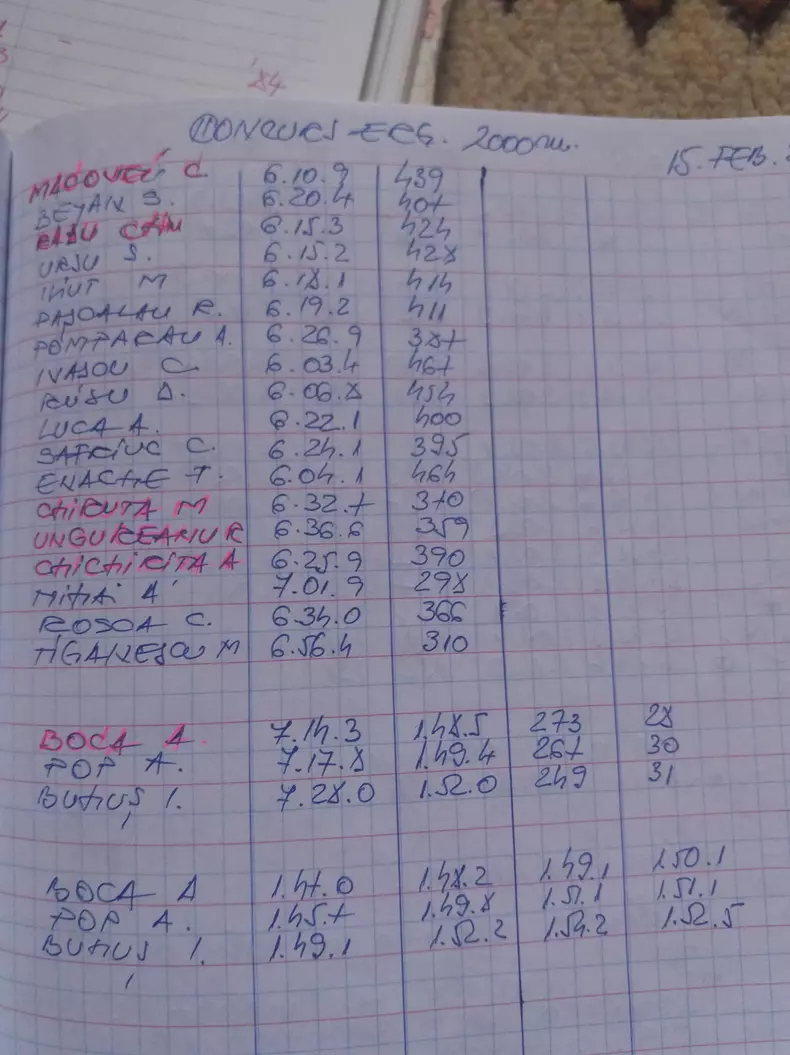 '84
CONCURS - ERG. 2000m. 15. FEB.
MACOVEI C. 6.10.9 439
BEJAN S. 6.20.4 407
RADU 6.15.3 424
URSU S. 6.15.2 428
M 6.18.1 414
PASCALAU R. 6.19.2 411
POMPARAU A. 6.26.9 387
IVASCU C 6.03.4 467
RUSU D. 6.06.8 454
LUCA A. 6.22.1 400
C. 6.24.1 395
ENACHE T. 6.04.1 464
CHIRUTA M 6.32.7 370
UNGUREANU R 6.36.6 359
CHICHIRITA A 6.25.9 390
MIHAI A 7.01.9 298
ROSCA C. 6.34.0 366
TIGANESCU M 6.56.4 310
BOCA A. 7.14.3 1.48.5 273 28
POP A. 7.17.8 1.49.4 267 30
BUHUȘ I. 7.28.0 1.52.0 249 31
BOCA A 1.47.0 1.48.2 1.49.1 1.50.1
POP A. 1.45.7 1.49.8 1.51.1 1.51.1
BUHUȘ I. 1.49.1 1.52.2 1.54.2 1.52.5